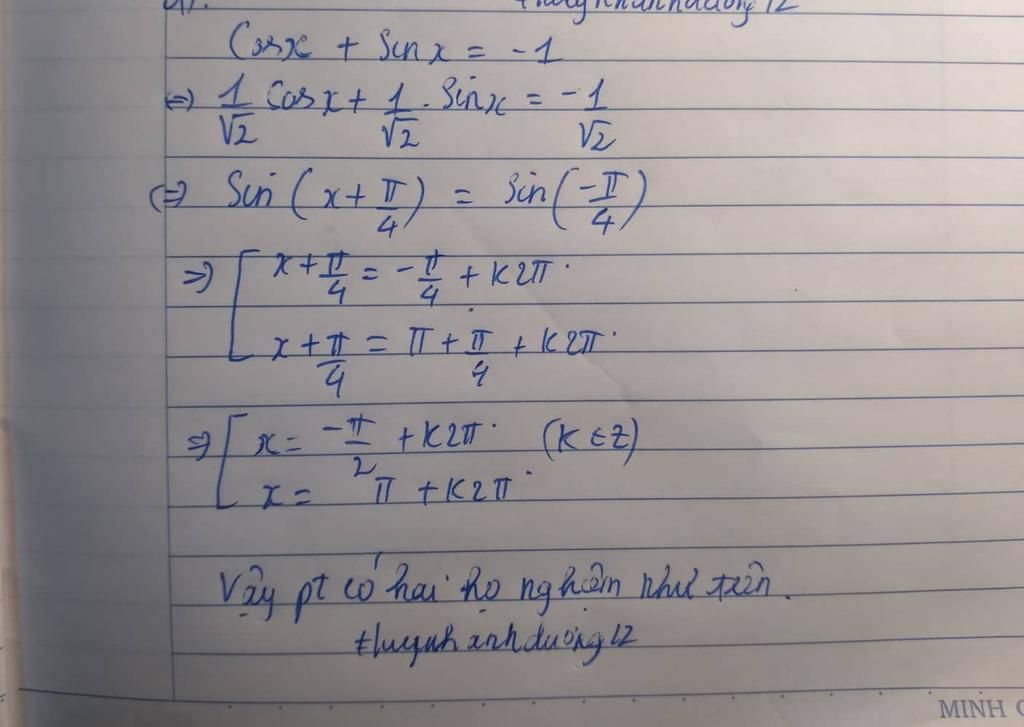 Cosx + Sinx = -1
⇔ 1/√2 Cosx + 1/√2 . Sinx = -1/√2
⇔ Sin(x + π/4) = Sin(-π/4)
⇒ [ x + π/4 = -π/4 + k2π
x + π/4 = π + π/4 + k2π
⇒ [ x = -π/2 + k2π (k ∈ Z)
x = π + k2π
Vậy pt có hai họ nghiệm như trên.
MINH